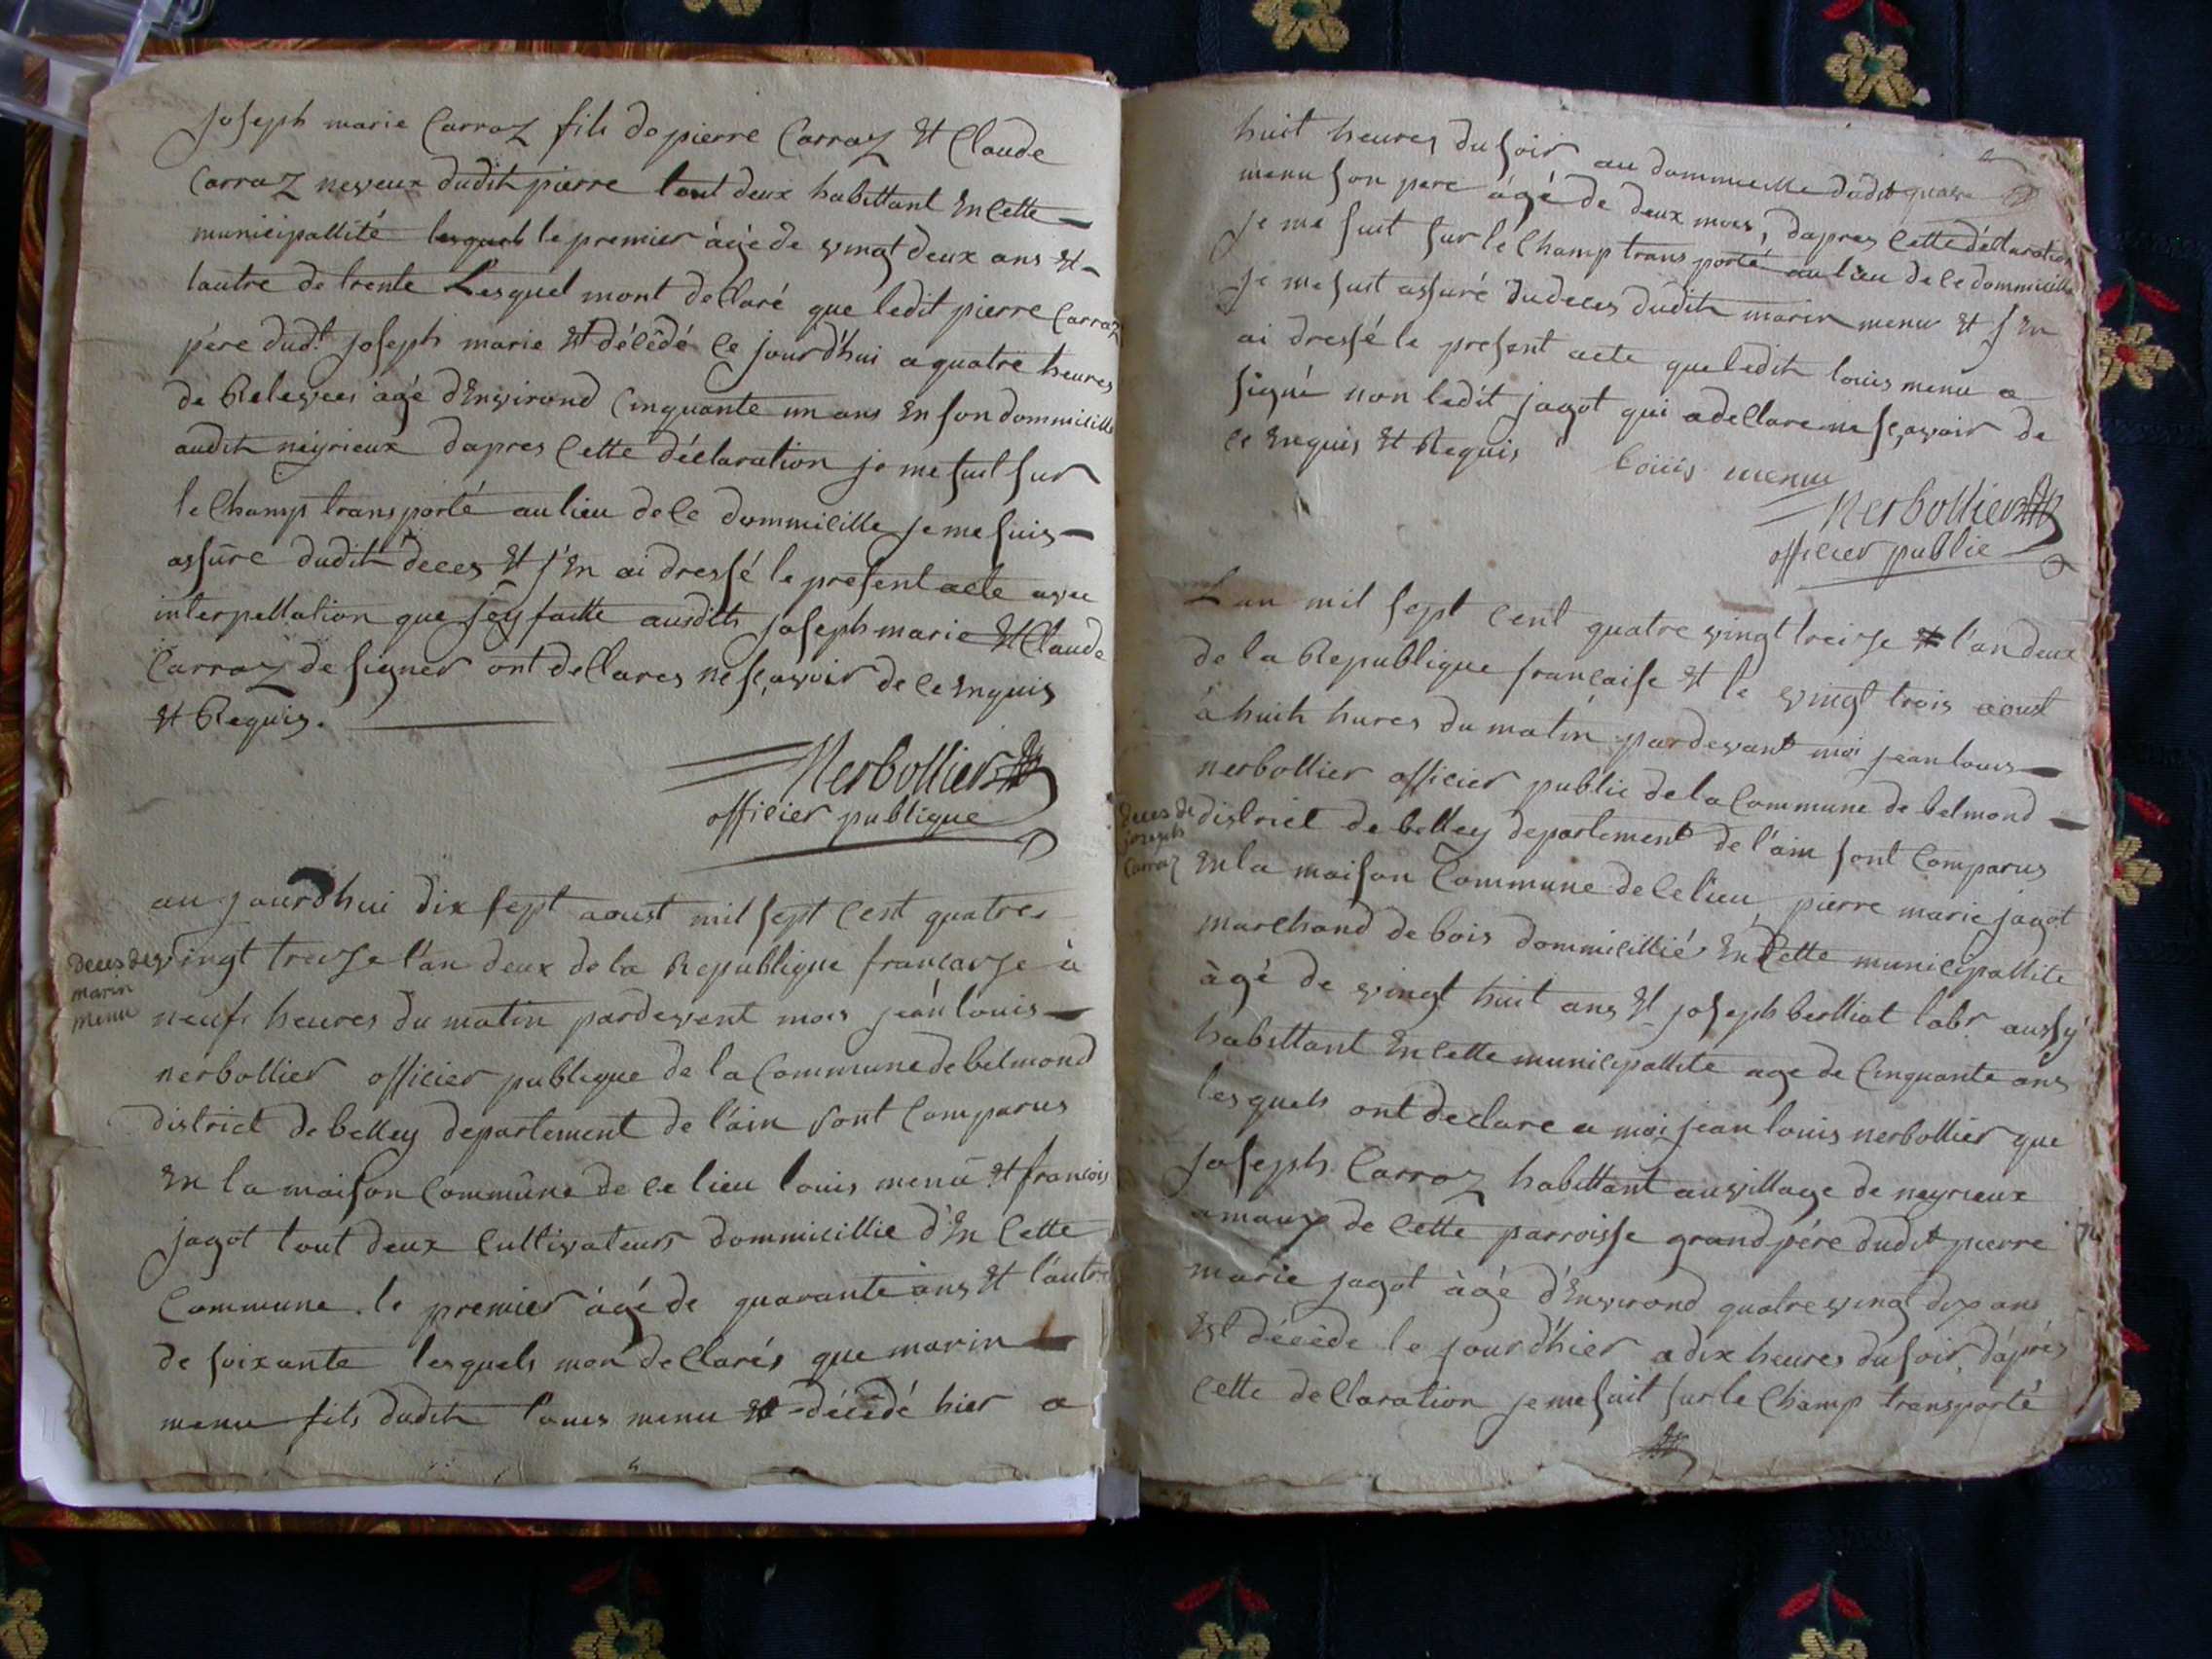 joseph marie Carraz fils de pierre Carraz et Claude
Carraz neveux dudit pierre tout deux habittant en cette
municipallité lesquels le premier àgé de vingt deux ans et
lautre de trente Lesquel mont dellaré que ledit pierre Carraz
pére dud.t joseph marie et décédé ce jourd'hui a quatre heures
de Relevees agé d'Environd Cinquante un ans en son dommicille
audit neyrieux dapres Cette déclaration je me suit sur
le Champ transporté au lieu de ce dommicille je me suis
assuré dudit déces et j'en ai dressé le present acte avec
interpellation que jey faitte ausdits joseph marie et Claude
Carraz de signer ont dellares ne sçavoir de ce enquis
et Requis.
Nerbollier
officier publique
aujourdhui dix sept aoust mil sept Cent quatres
vingt treize l'an deux de la Republique francaise à
neufs heures du matin pardevent mois jean louis
nerbollier officier publique de la Commune de belmond
district de belley departement de l'ain sont Comparus
en la maison Commune de ce lieu louis menu et francois
jagot tout deux Cultivateurs dommicillie d'En Cette
Commune. le premier àgé de quarante ans et l'autre
de soixante lesquels mon dellarés que marin
menu fils dudit louis menu et décédé hier a
deces de
marin
menu
huit heures du soir au dommicille dudit
menu son pere àgé de deux mois, dapres Cette déllaration
je me suit sur le Champ transporté au lieu de ce dommicille
je me suit assuré du deces dudit marin menu et j'en
ai dressé le present acte que ledit louis menu a
signé non ledit jagot qui a dellare ne sçavoir de
ce enquis et Requis louis menu
Nerbollier
officier public
L'an mil sept Cent quatre vingt treize et l'an deux
de la Republique francaise et le vingt trois aoust
à huit hures du matin pardevant moi jean louis
nerbollier officier public de la Commune de belmond
district de belley departement de l'ain sont Comparus
en la maison Commune de ce lieu, pierre marie jagot
marchand de bois dommicillié en Cette municipallite
àgé de vingt huit ans et joseph berlliat labr aussy
habittant en cette municipallite age de Cinquante ans
lesquels ont declare a moi jean louis nerbollier que
joseph Carraz habittant au village de neyrieux
amaux de Cette parroisse grand pére dudit pierre
marie jagot àgé d'Environd quatre vingt dix ans
est décédé le jour d'hier a dix heures du soir, d'aprés
Cette dellaration je me suit sur le Champ transporté
deces de
joseph
Carraz